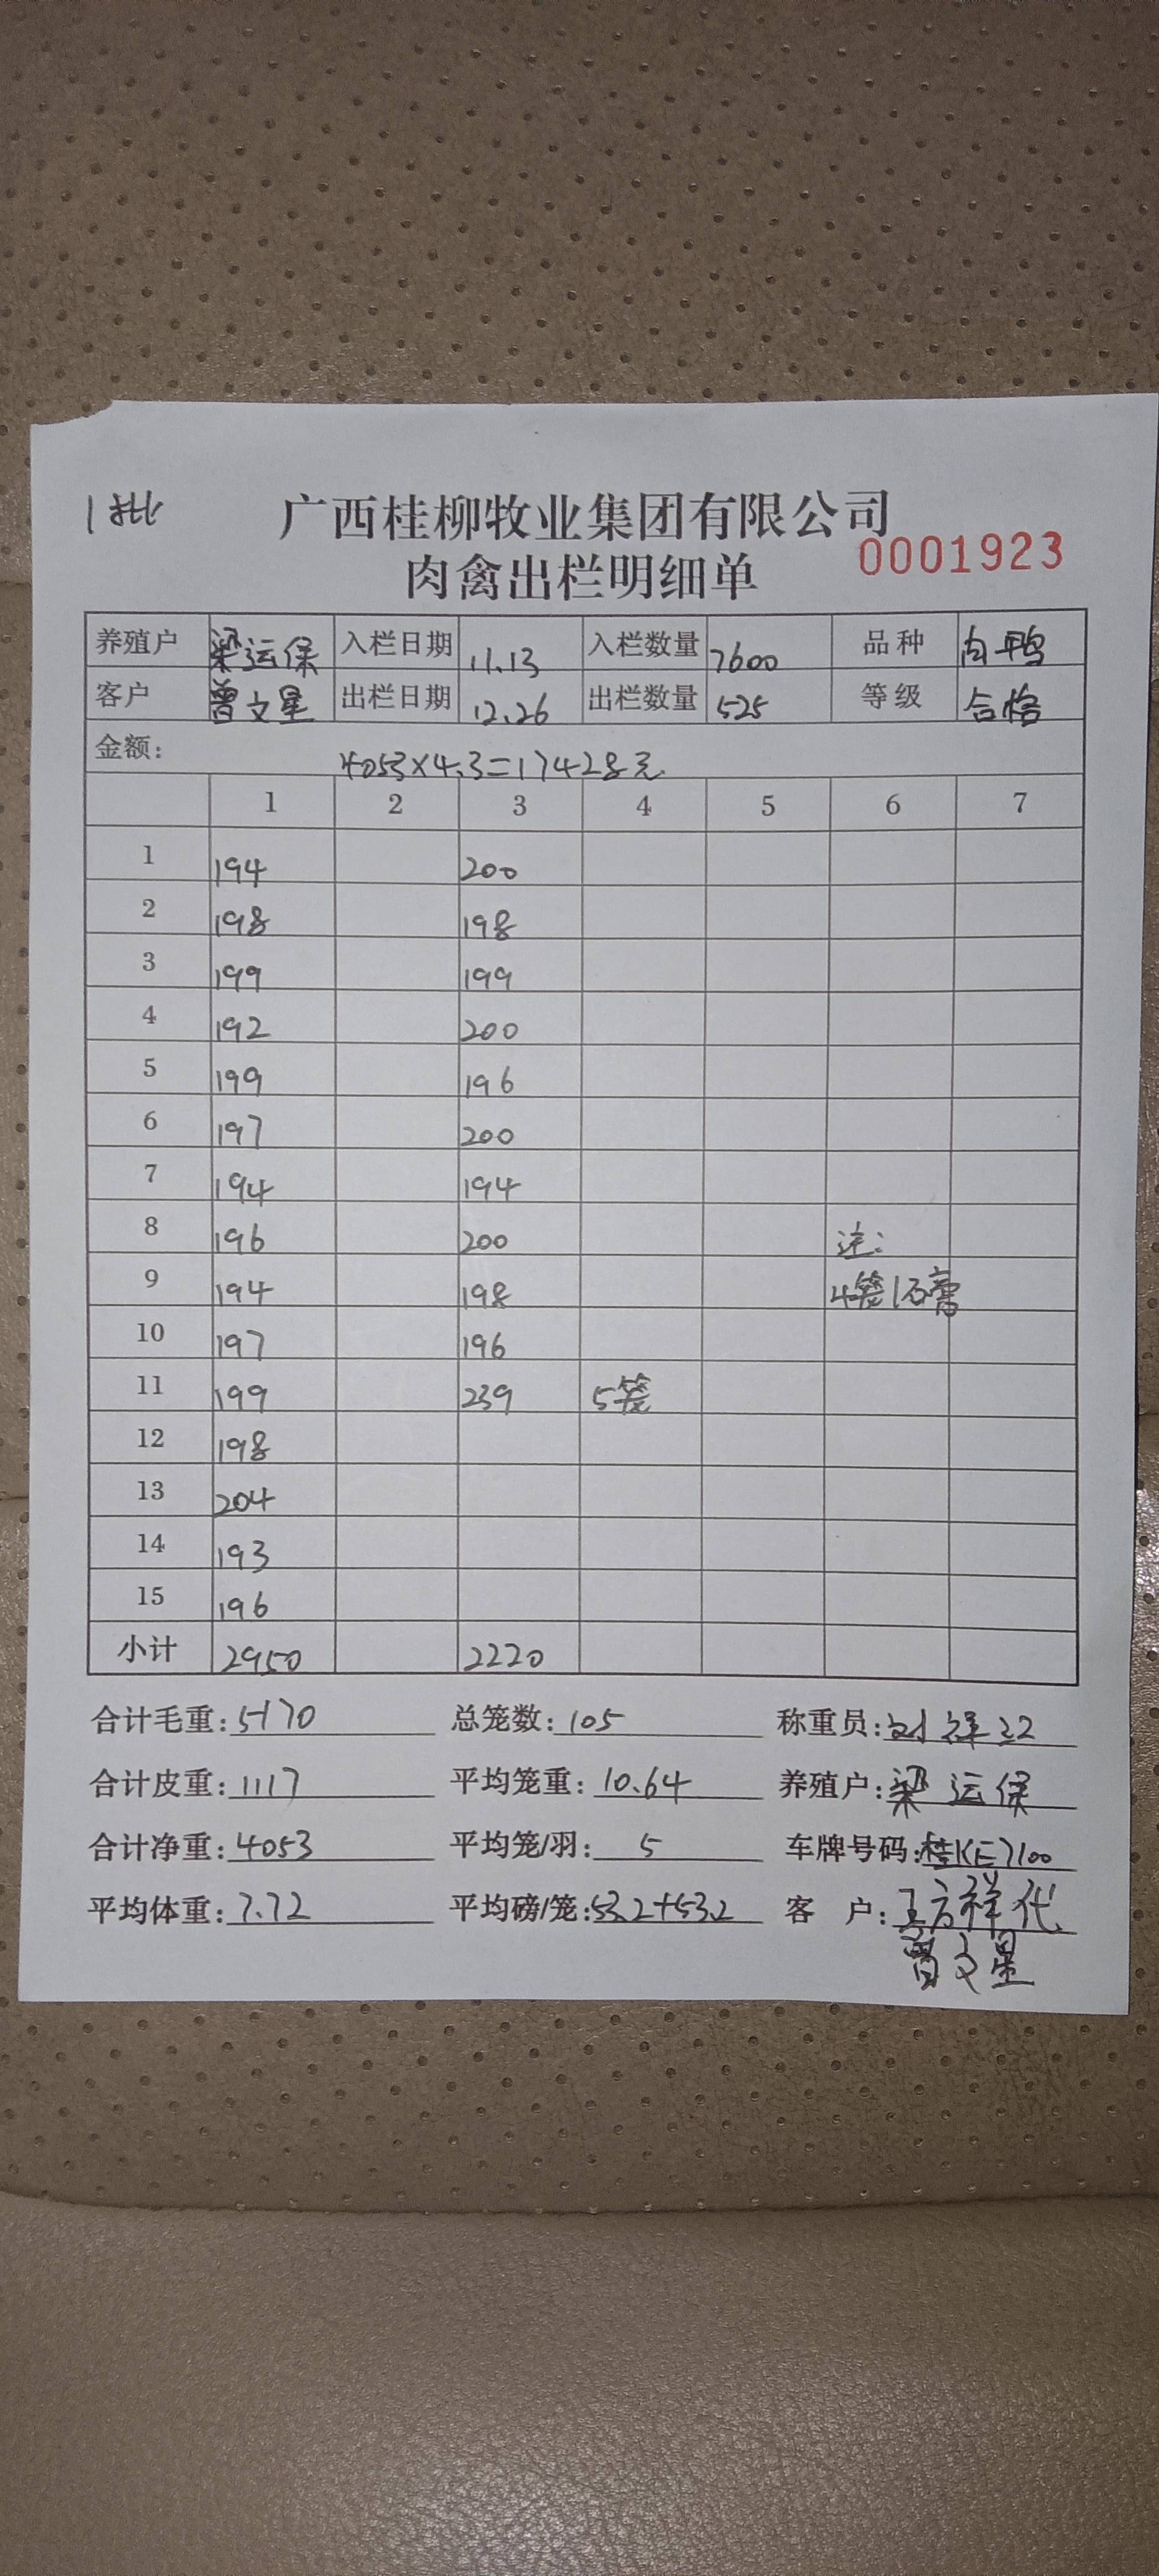 1批
广西桂柳牧业集团有限公司
0001923
肉禽出栏明细单
养殖户 梁运保 入栏日期 11.13 入栏数量 7600 品种 肉鸭
客户 曾文星 出栏日期 12.26 出栏数量 525 等级 合格
金额: 4053×4.3=17428元
1 2 3 4 5 6 7
1 194 200
2 198 198
3 199 199
4 192 200
5 199 196
6 197 200
7 194 194
8 196 200 注:
9 194 198 4笼1石膏
10 197 196
11 199 239 5笼
12 198
13 204
14 193
15 196
小计 2950 2220
合计毛重: 5170 总笼数: 105 称重员:
合计皮重: 1117 平均笼重: 10.64 养殖户: 梁运保
合计净重: 4053 平均笼/羽: 5 车牌号码: 桂KE7100
平均体重: 7.72 平均磅/笼: 53.2+53.2 客 户: 王方祥代
曾文星